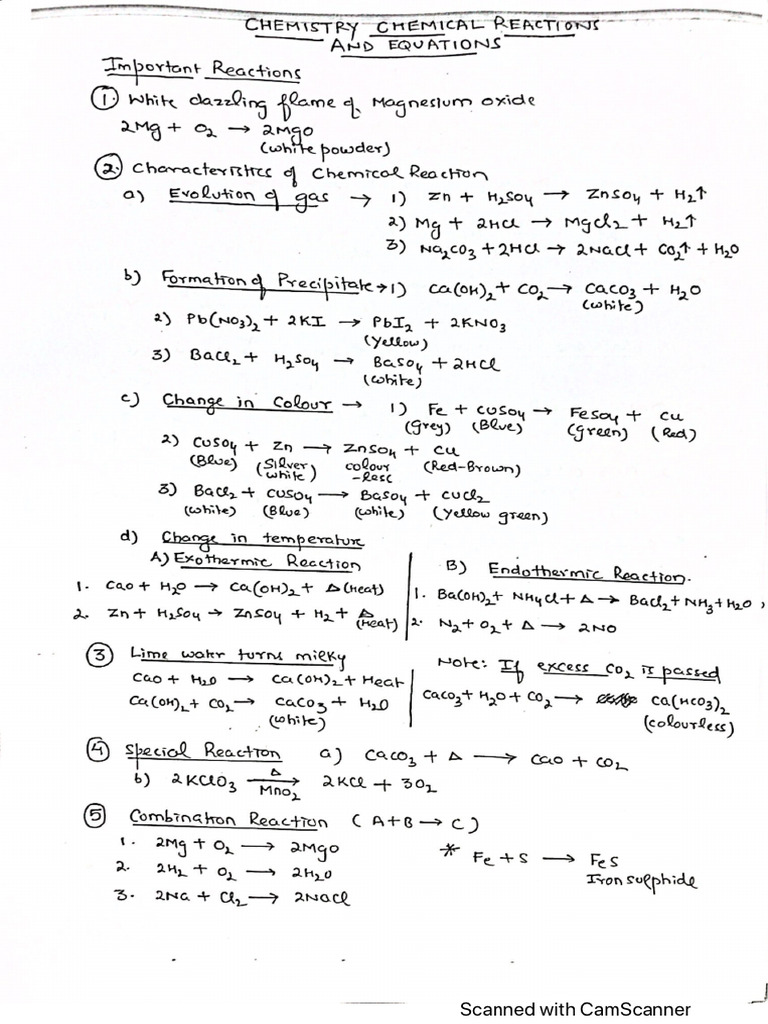 CHEMISTRY CHEMICAL REACTIONS
AND EQUATIONS
Important Reactions
① White dazzling flame of Magnesium oxide
2Mg + O₂ → 2MgO
(white powder)
② Characteristics of Chemical Reaction
a) Evolution of gas → 1) Zn + H₂SO₄ → ZnSO₄ + H₂↑
2) Mg + 2HCl → MgCl₂ + H₂↑
3) Na₂CO₃ + 2HCl → 2NaCl + CO₂↑ + H₂O
b) Formation of Precipitate → 1) Ca(OH)₂ + CO₂ → CaCO₃ + H₂O
(white)
2) Pb(NO₃)₂ + 2KI → PbI₂ + 2KNO₃
(yellow)
3) BaCl₂ + H₂SO₄ → BaSO₄ + 2HCl
(white)
c) Change in Colour → 1) Fe + CuSO₄ → FeSO₄ + Cu
(Grey) (Blue) (Green) (Red)
2) CuSO₄ + Zn → ZnSO₄ + Cu
(Blue) (Silver white) colour-less (Red-Brown)
3) BaCl₂ + CuSO₄ → BaSO₄ + CuCl₂
(white) (Blue) (white) (Yellow green)
d) Change in temperature
A) Exothermic Reaction
1. CaO + H₂O → Ca(OH)₂ + Δ (Heat)
2. Zn + H₂SO₄ → ZnSO₄ + H₂ + Δ (Heat)
B) Endothermic Reaction.
1. Ba(OH)₂ + NH₄Cl + Δ → BaCl₂ + NH₃ + H₂O,
2. N₂ + O₂ + Δ → 2NO
③ Lime water turns milky
CaO + H₂O → Ca(OH)₂ + Heat
Ca(OH)₂ + CO₂ → CaCO₃ + H₂O
(white)
Note: If excess CO₂ is passed
CaCO₃ + H₂O + CO₂ → Ca(HCO₃)₂
(colourless)
④ Special Reaction a) CaCO₃ + Δ → CaO + CO₂
b) 2KClO₃ Δ→ MnO₂ 2KCl + 3O₂
⑤ Combination Reaction (A+B → C)
1. 2Mg + O₂ → 2MgO
2. 2H₂ + O₂ → 2H₂O
3. 2Na + Cl₂ → 2NaCl
* Fe + S → FeS
Iron sulphide
Scanned with CamScanner